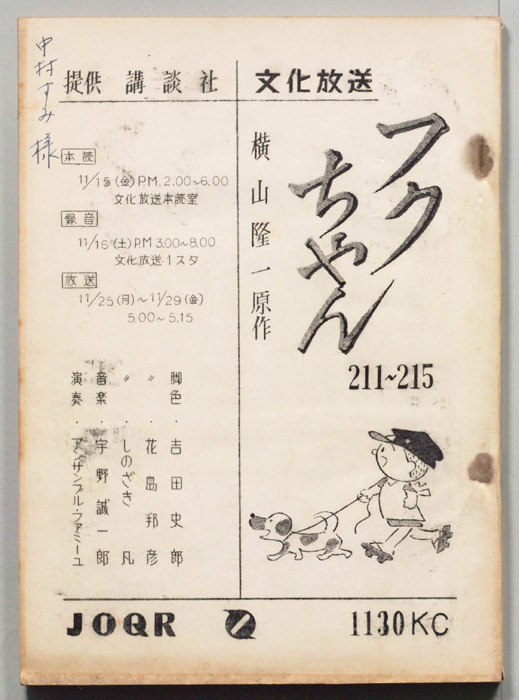 中村すみ様
提供 講談社
文化放送
フクちゃん
横山隆一原作
211~215
本読
11/15(金)P.M. 2.00~6.00
文化放送本読室
録音
11/16(土)P.M 3.00~8.00
文化放送1スタ
放送
11/25(月)~11/29(金)
5.00~5.15
脚色・吉田史郎
〃・花島邦彦
〃・しのざき凡
音楽・宇野誠一郎
演奏・アンサンブル・ファミーユ
JOQR
1130KC